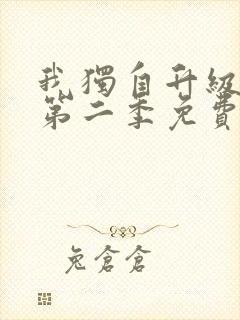 我獨自升級
第二季免費
兔倉倉